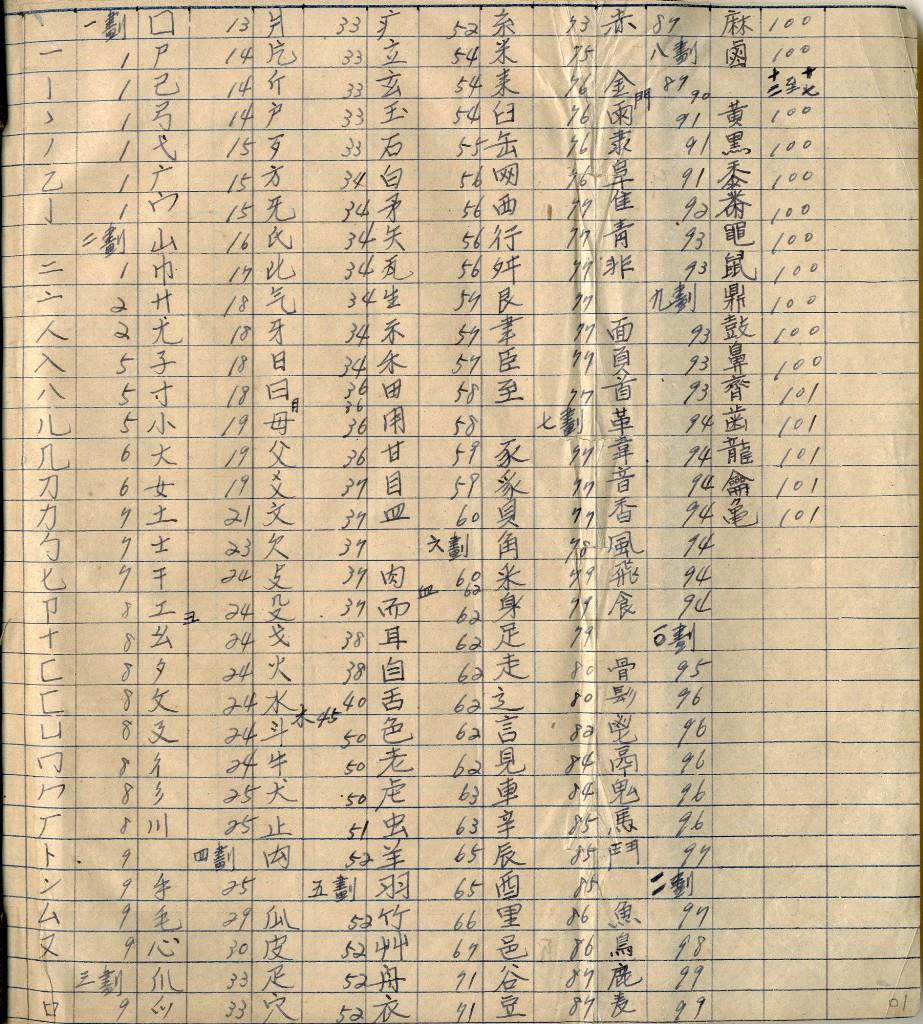 一劃
一 1
丨 1
丶 1
丿 1
乙 1
亅 1
二劃
二 1
亠 2
人 2
入 5
八 5
儿 5
几 6
刀 6
力 7
勹 7
匕 7
卩 8
十 8
匚 8
匸 8
凵 8
冂 8
冖 8
厂 8
卜 9
冫 9
厶 9
又 9
三劃
口 9
囗 13
尸 14
己 14
弓 14
弋 15
广 15
宀 15
山 16
巾 17
廾 18
尢 18
子 18
寸 18
小 19
大 19
女 19
土 21
士 23
干 24
工 彐 24
幺 24
夕 24
夂 24
廴 24
彳 24
彡 25
川 25
四劃
手 25
毛 29
心 30
爪 33
33
爿 33
片 33
斤 33
戶 33
歹 33
方 34
无 34
氏 34
比 34
气 34
牙 34
日 34
曰 36
月 36
毋 36
父 36
爻 37
文 37
欠 37
支 37
殳 37
戈 38
火 38
水 40
木 45
斗 50
牛 50
犬 50
止 51
禸 52
五劃
瓜 52
皮 52
疋 52
穴 52
疒 52
立 54
玄 54
玉 54
石 55
白 56
矛 56
矢 56
瓦 56
生 57
示 57
禾 57
田 58
用 58
甘 59
目 59
皿 60
六劃
肉 60
血 62
而 62
耳 62
自 62
舌 62
色 62
老 62
虍 63
虫 63
羊 65
羽 65
竹 66
艸 67
舟 71
衣 71
糸 73
米 75
耒 76
臼 76
缶 76
网 76
西 77
行 77
舛 77
艮 77
聿 77
臣 77
至 77
七劃
豕 77
豸 77
貝 77
角 78
釆 79
身 79
足 79
走 80
辵 80
言 82
見 84
車 84
辛 85
辰 85
酉 85
里 86
邑 86
谷 87
豆 87
赤 87
八劃
金 87
門 90
雨 91
隶 91
阜 91
隹 92
青 93
非 93
九劃
面 93
頁 93
首 93
革 94
韋 94
音 94
香 94
風 94
飛 94
食 94
劃
骨 95
髟 96
鬯 96
鬲 96
鬼 96
馬 96
鬥 97
劃
魚 97
鳥 98
鹿 99
麦 99
麻 100
鹵 100
十二至十七
黃 100
黒 100
黍 100
黹 100
黽 100
鼠 100
鼎 100
鼓 100
鼻 100
齊 101
歯 101
龍 101
龠 101
亀 101
101